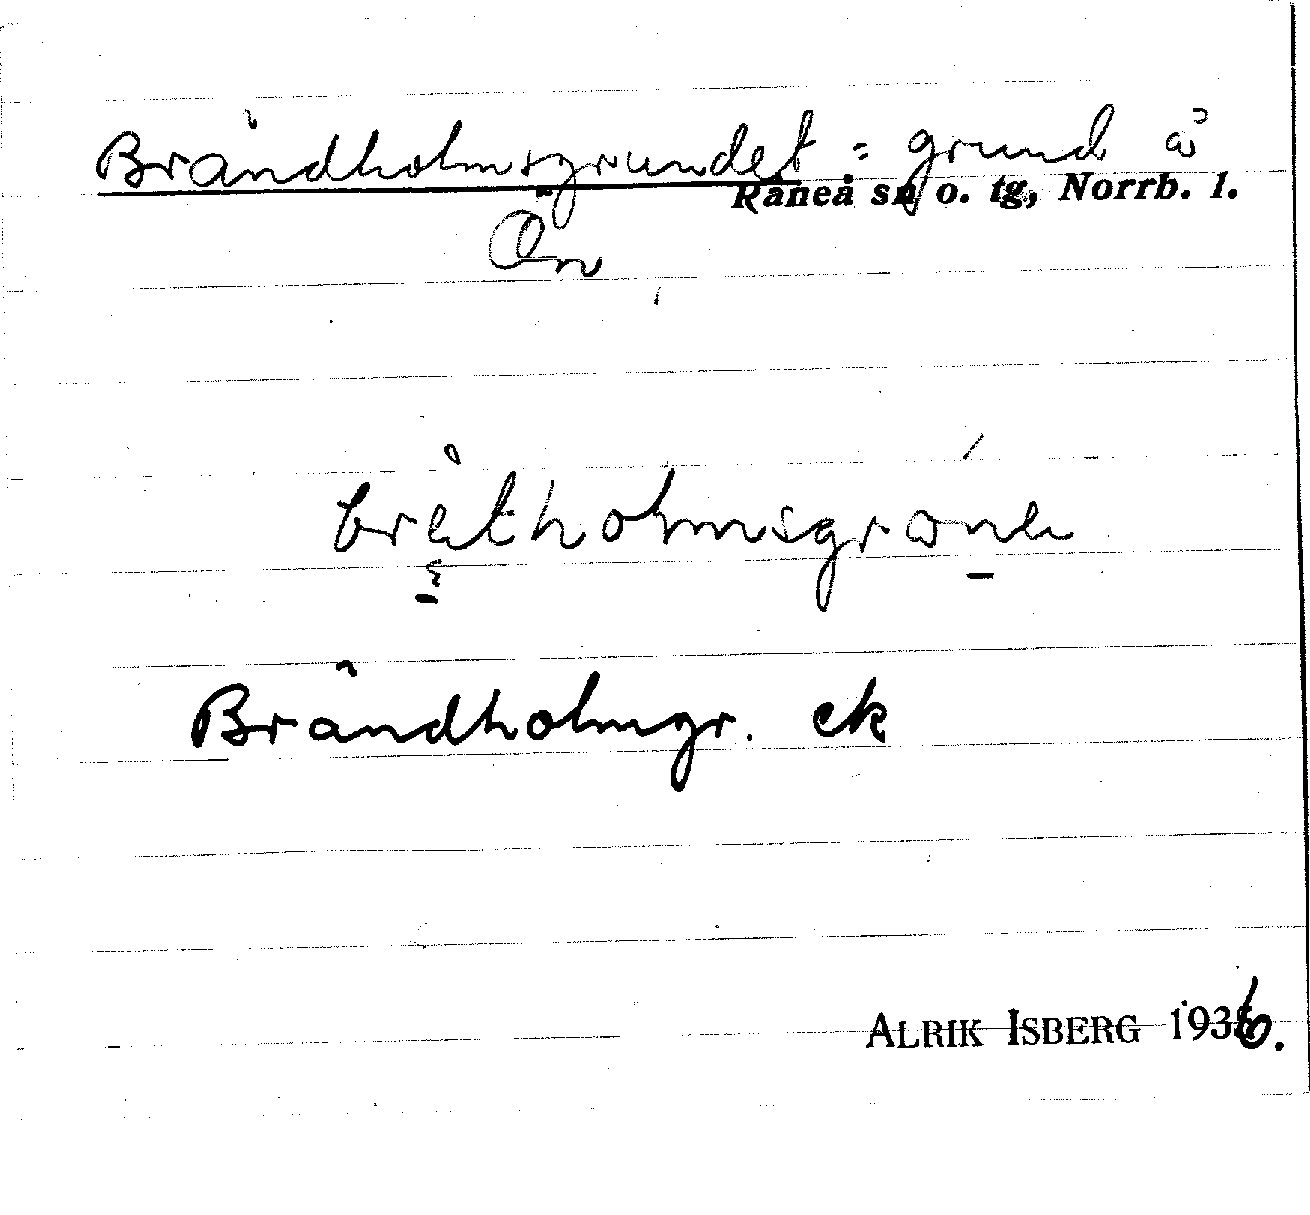 Brändholmsgrundet = grund å
Råneå sn o. tg, Norrb. l.
Ön
Brändholmgr. ek
ALRIK ISBERG 1936.